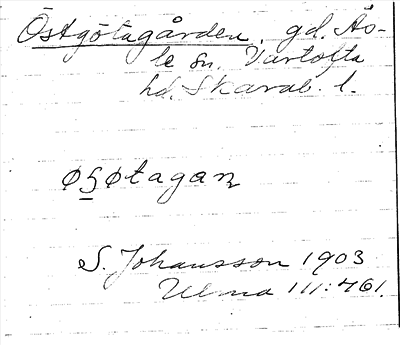 Östgötagården, gd. Ås-
le sn. Vartofta
hd. Skarab. l.
øsøtagan
S. Johansson 1903
Ulma 111:461.